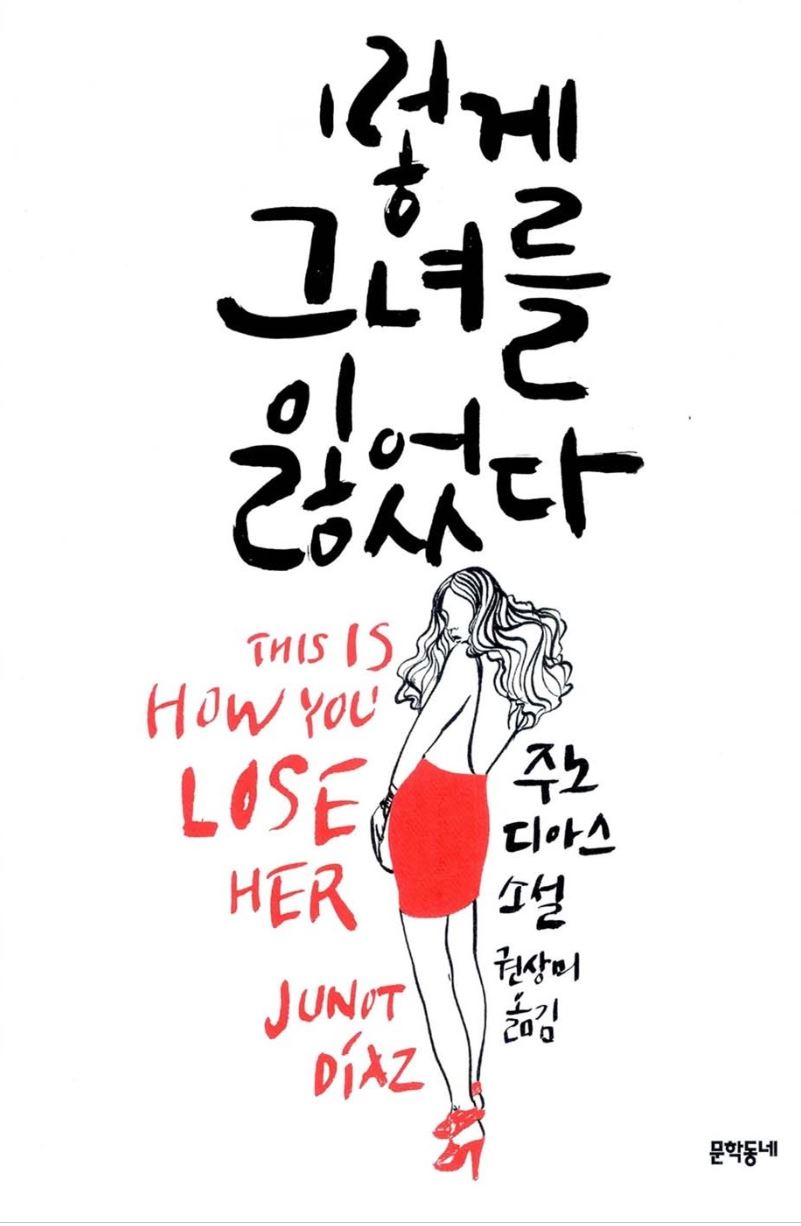 이렇게
그녀를
잃었다
THIS IS
HOW YOU
LOSE
HER
JUNOT
DÍAZ
주노
디아스
소설
권상미
옮김
문학동네